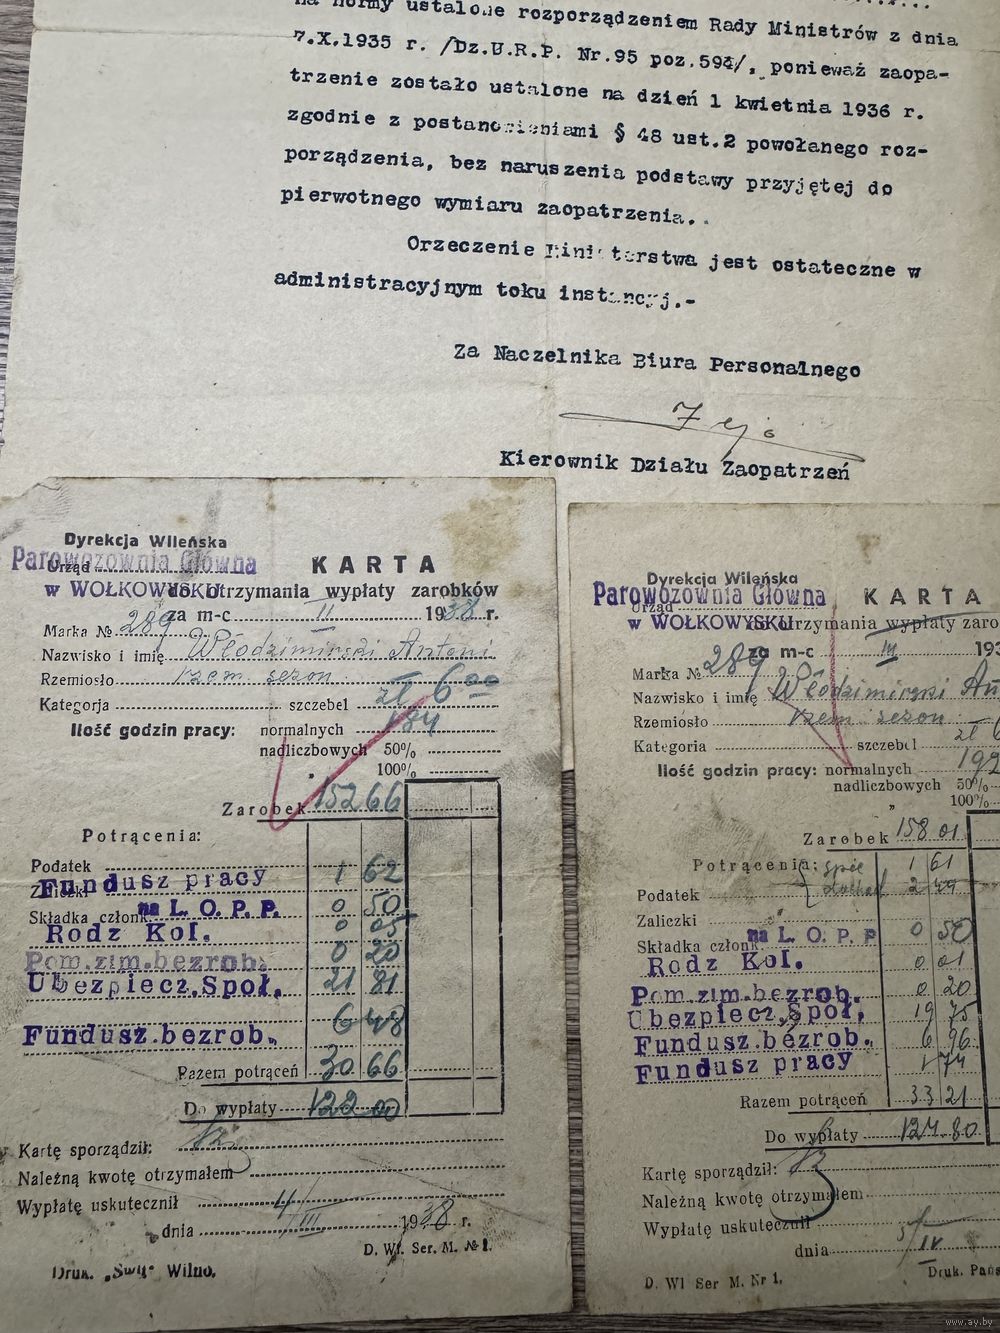 na normy ustalone rozporządzeniem Rady Ministrów z dnia
7.X.1935 r. /Dz.U.R.P. Nr.95 poz.594/, ponieważ zaopa-
trzenie zostało ustalone na dzień 1 kwietnia 1936 r.
zgodnie z postanowieniami § 48 ust.2 powołanego roz-
porządzenia, bez naruszenia podstawy przyjętej do
pierwotnego wymiaru zaopatrzenia.
Orzeczenie Ministerstwa jest ostateczne w
administracyjnym toku instancyj.-
Za Naczelnika Biura Personalnego
Kierownik Działu Zaopatrzeń
Dyrekcja Wileńska
Parowozownia Główna
Urząd
w WOŁKOWYSKU
KARTA
do otrzymania wypłaty zarobków
za m-c II 1938 r.
Marka № 289
Nazwisko i imię Włodzimirski Antoni
Rzemiosło rzem. sezon
Kategorja szczebel zł 6 00
Ilość godzin pracy: normalnych 184
nadliczbowych 50%
" 100%
Zarobek 152 66
Potrącenia:
Podatek
Fundusz pracy 1 62
Zaliczki
na L. O. P. P. 0 50
Składka członk.
Rodz Kol. 0 05
Pom. zim. bezrob. 0 20
Ubezpiecz. Społ. 21 81
Fundusz. bezrob. 6 48
Razem potrąceń 30 66
Do wypłaty 122 00
Kartę sporządził:
Należną kwotę otrzymałem
Wypłatę uskutecznił
dnia 4/III 1938 r.
D. Wl. Ser. M. № 1.
Druk. „Świt" Wilno.
Dyrekcja Wileńska
Parowozownia Główna
Urząd
w WOŁKOWYSKU
KARTA
do otrzymania wypłaty zaro
za m-c III 193
Marka № 289
Nazwisko i imię Włodzimirski An
Rzemiosło rzem sezon
Kategoria szczebel zł 6
Ilość godzin pracy: normalnych 192
nadliczbowych 50%
" 100%
Zarobek 158 01
Potrącenia: 1 61
Podatek 2 49
Zaliczki
na L. O. P. P 0 50
Składka członk.
Rodz Kol. 0 01
Pom. zim. bezrob. 0 20
Ubezpiecz. Społ. 19 75
Fundusz. bezrob. 6 96
Fundusz pracy 1 74
Razem potrąceń 33 21
Do wypłaty 124.80
Kartę sporządził:
Należną kwotę otrzymałem
Wypłatę uskutecznił
dnia 5/IV
D. Wl Ser M. Nr 1.
Druk. Pańs
www.ay.by